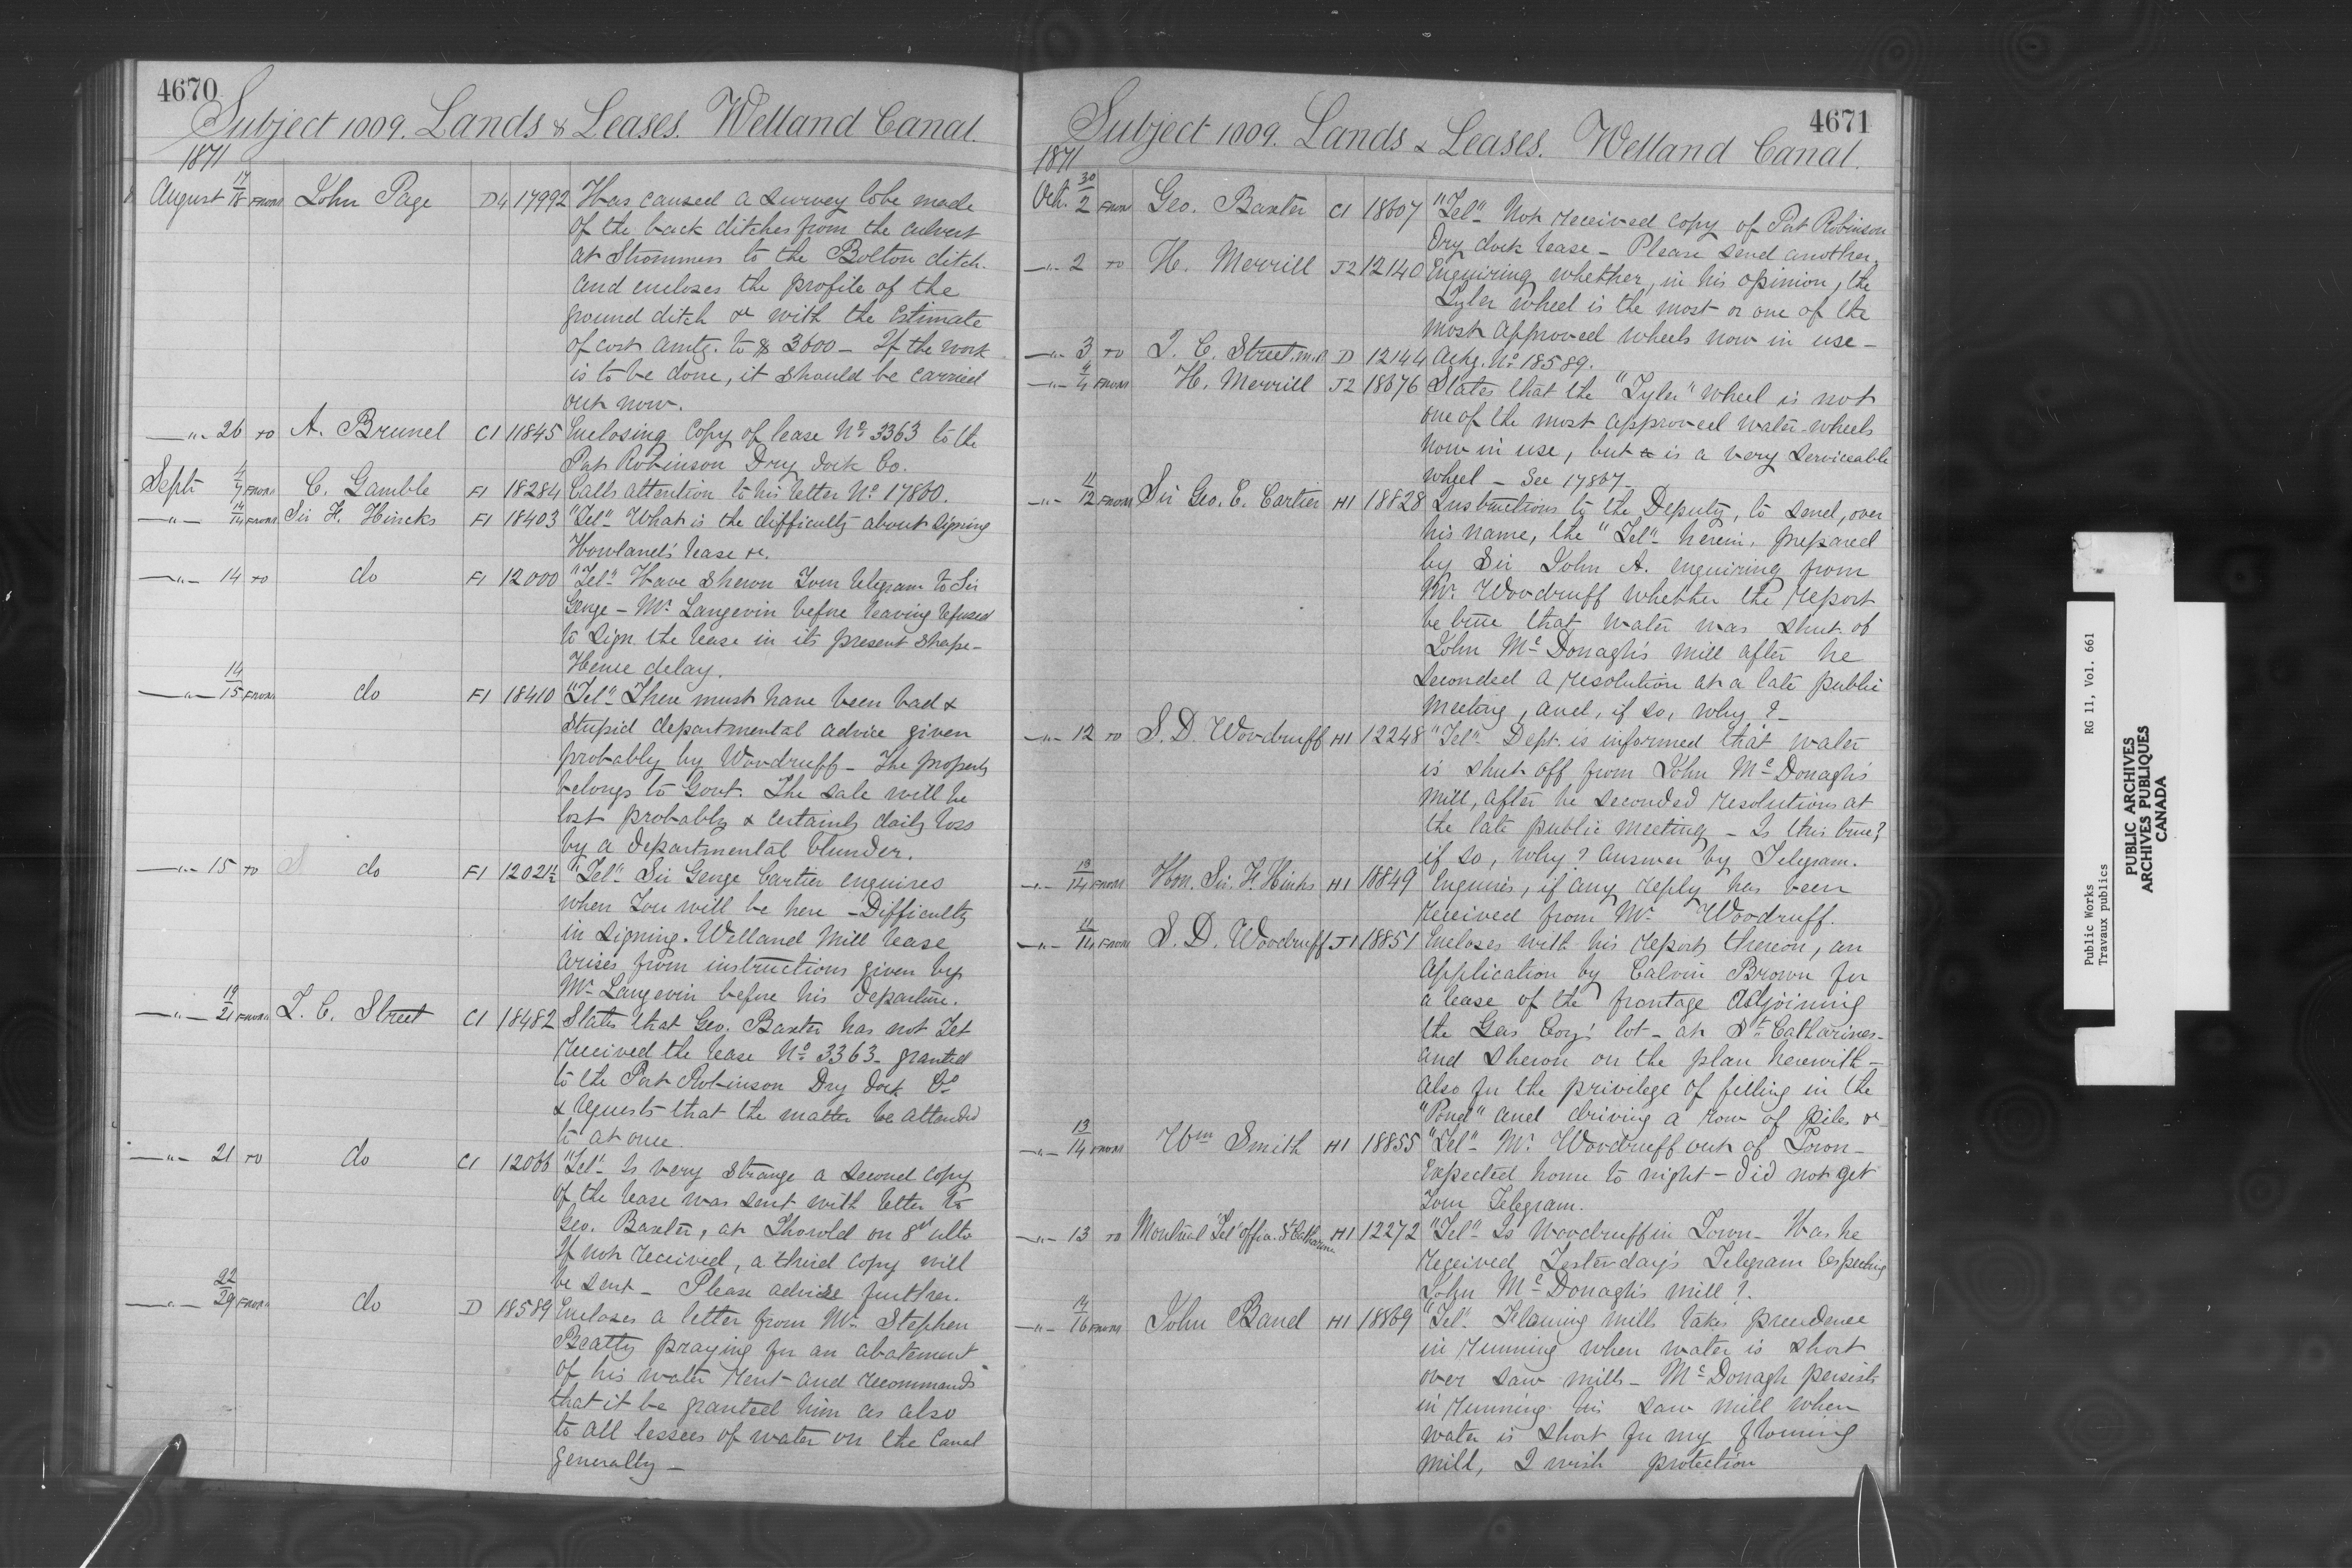 4670
Subject 1009. Lands & Leases. Welland Canal.
1871
August 17/18 FROM John Page D4 17992 Has caused a survey to be made
of the back ditches from the culvert
at Strommers to the Bolton ditch.
and encloses the profile of the
ground ditch &c with the Estimate
of cost amtg. to $ 3600 - If the work
is to be done, it should be carried
out now.
-"- 26 TO A. Brunel C1 11845 Enclosing Copy of lease No 3363 to the
Port Robinson Dry dock Co.
Sept 4/7 FROM C. Gamble F1 18284 Calls attention to his letter No 17860.
-"- 14/14 FROM Sir F. Hincks F1 18403 "Tel" What is the difficulty about signing
Howland's lease &c.
-"- 14 TO do F1 12000 "Tel" Have shewn Your telegram to Sir
George - Mr Langevin before leaving refused
to sign the lease in its present shape -
Hence delay.
-"- 14/15 FROM do F1 18410 "Tel" There must have been bad &
stupid departmental advice given
probably by Woodruff - The property
belongs to Govt. The sale will be
lost probably & certainly daily loss
by a departmental blunder.
-"- 15 TO do F1 12021½ "Tel" Sir George Cartier enquires
when You will be here - Difficulty
in signing Welland Mill lease
arises from instructions given by
Mr Langevin before his departure.
-"- 19/21 FROM T. C. Street C1 18482 States that Geo. Baxter has not Yet
received the lease No 3363 - granted
to the Port Robinson Dry dock Co
& requests that the matter be attended
to at once.
-"- 21 TO do C1 12066 "Tel" Is very strange a second copy
of the lease was sent with letter to
Geo. Baxter, at Thorold on 8th ulto
If not received, a third copy will
be sent - Please advise further.
-"- 22/29 FROM do D 18589 Encloses a letter from Mr Stephen
Beatty praying for an abatement
of his water rent - and recommends
that it be granted him as also
to all lessees of water on the Canal
generally -
4671
Subject 1009. Lands & Leases. Welland Canal.
1871
Oct. 30/2 FROM Geo. Baxter C1 18607 "Tel" Not received copy of Port Robinson
Dry dock lease - Please send another.
-"- 2 TO H. Merrill J2 12140 Enquiring whether, in his opinion, the
Tyler wheel is the most or one of the
most approved wheels now in use -
-"- 3 TO T. C. Street. M.P. D 12144 Ackg. No 18589.
-"- 4/4 FROM H. Merrill J2 18676 States that the "Tyler" wheel is not
one of the most approved water-wheels
now in use, but is a very serviceable
wheel - See 17867 -
-"- 11/12 FROM Sir Geo. E. Cartier H1 18828 Instructions to the Deputy, to send, over
his name, the "Tel" herein, prepared
by Sir John A. enquiring from
Mr. Woodruff whether the report
be true that water was shut of
John McDonagh's mill after he
seconded a resolution at a late public
meeting, and, if so, why? -
-"- 12 TO S. D. Woodruff H1 12248 "Tel" Dept. is informed that water
is shut off from John McDonagh's
mill, after he seconded resolutions at
the late public meeting - Is this true?
if so, why? Answer by Telegram.
-"- 13/14 FROM Hon. Sir. F. Hincks H1 18849 Enquires, if any reply has been
received from Mr Woodruff.
-"- 12/14 FROM S. D. Woodruff J1 18851 Encloses with his report thereon, an
application by Calvin Brown for
a lease of the frontage adjoining
the Gas Coy's lot - at St. Catharines -
and shewn on the plan herewith -
also for the privilege of filling in the
"Pond" and driving a row of piles &c
-"- 13/14 FROM Wm Smith H1 18855 "Tel" Mr. Woodruff out of Town -
Expected home to night - did not get
Your Telegram.
-"- 13 TO Montreal Tel office St Catharines H1 12272 "Tel" Is Woodruff in Town - Has he
received Yesterday's Telegram respecting
John McDonagh's mill?
-"- 14/16 FROM John Band H1 18869 "Tel" Flouring mills takes precedence
in running when water is short
over saw mills - McDonagh persists
in running his saw mill when
water is short for my flouring
mill, I wish protection
Public Works RG 11, Vol. 661
Travaux publics
PUBLIC ARCHIVES
ARCHIVES PUBLIQUES
CANADA